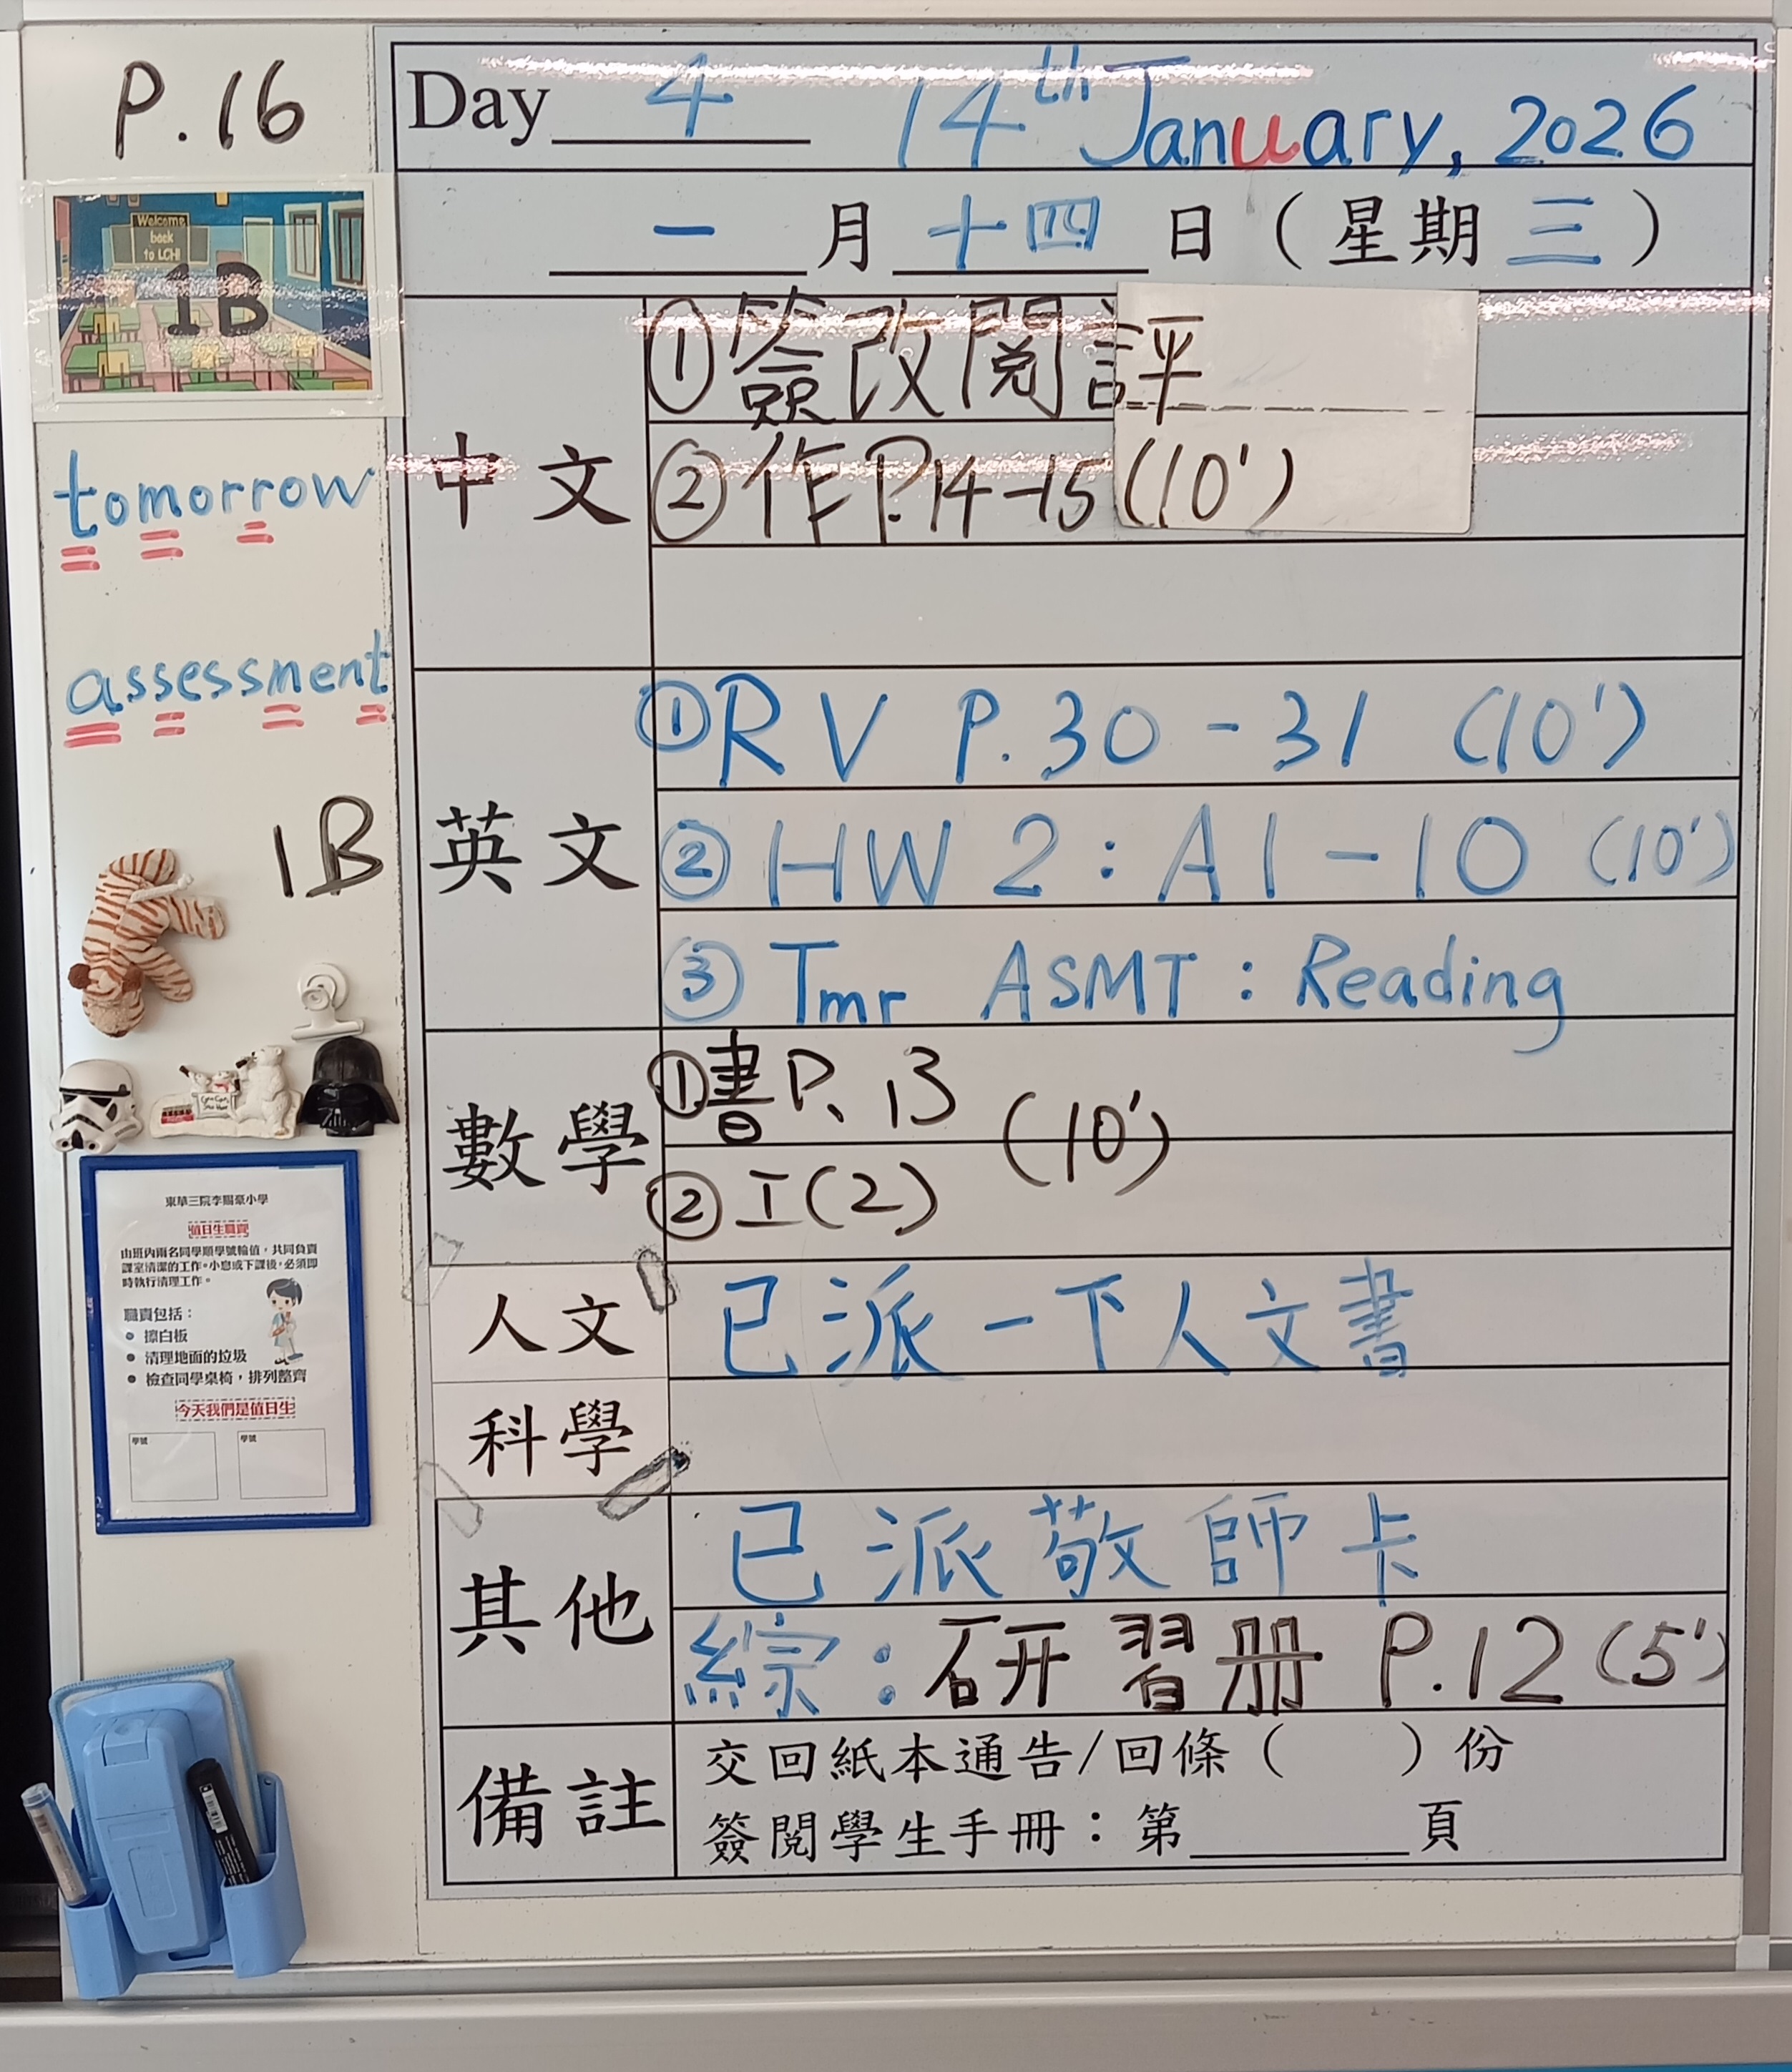 P.16
Welcome
back
to LCH!
1B
tomorrow
assessment
1B
東華三院李賜豪小學
值日生職責
由班內兩名同學順學號輪值，共同負責
課室清潔的工作。小息或下課後，必須即
時執行清理工作。
職責包括：
• 擦白板
• 清理地面的垃圾
• 檢查同學桌椅，排列整齊
今天我們是值日生
學號 學號
Day 4 14th January, 2026
一月十四日（星期三）
中文
①簽改閱評
②作P.14-15(10')
英文
①RV P.30-31 (10')
②HW 2: A1-10 (10')
③Tmr ASMT: Reading
數學
①書P.13
(10')
②工(2)
人文
已派一下人文書
科學
其他
已派敬師卡
綜：研習冊 P.12(5')
備註
交回紙本通告/回條（ ）份
簽閱學生手冊：第____頁